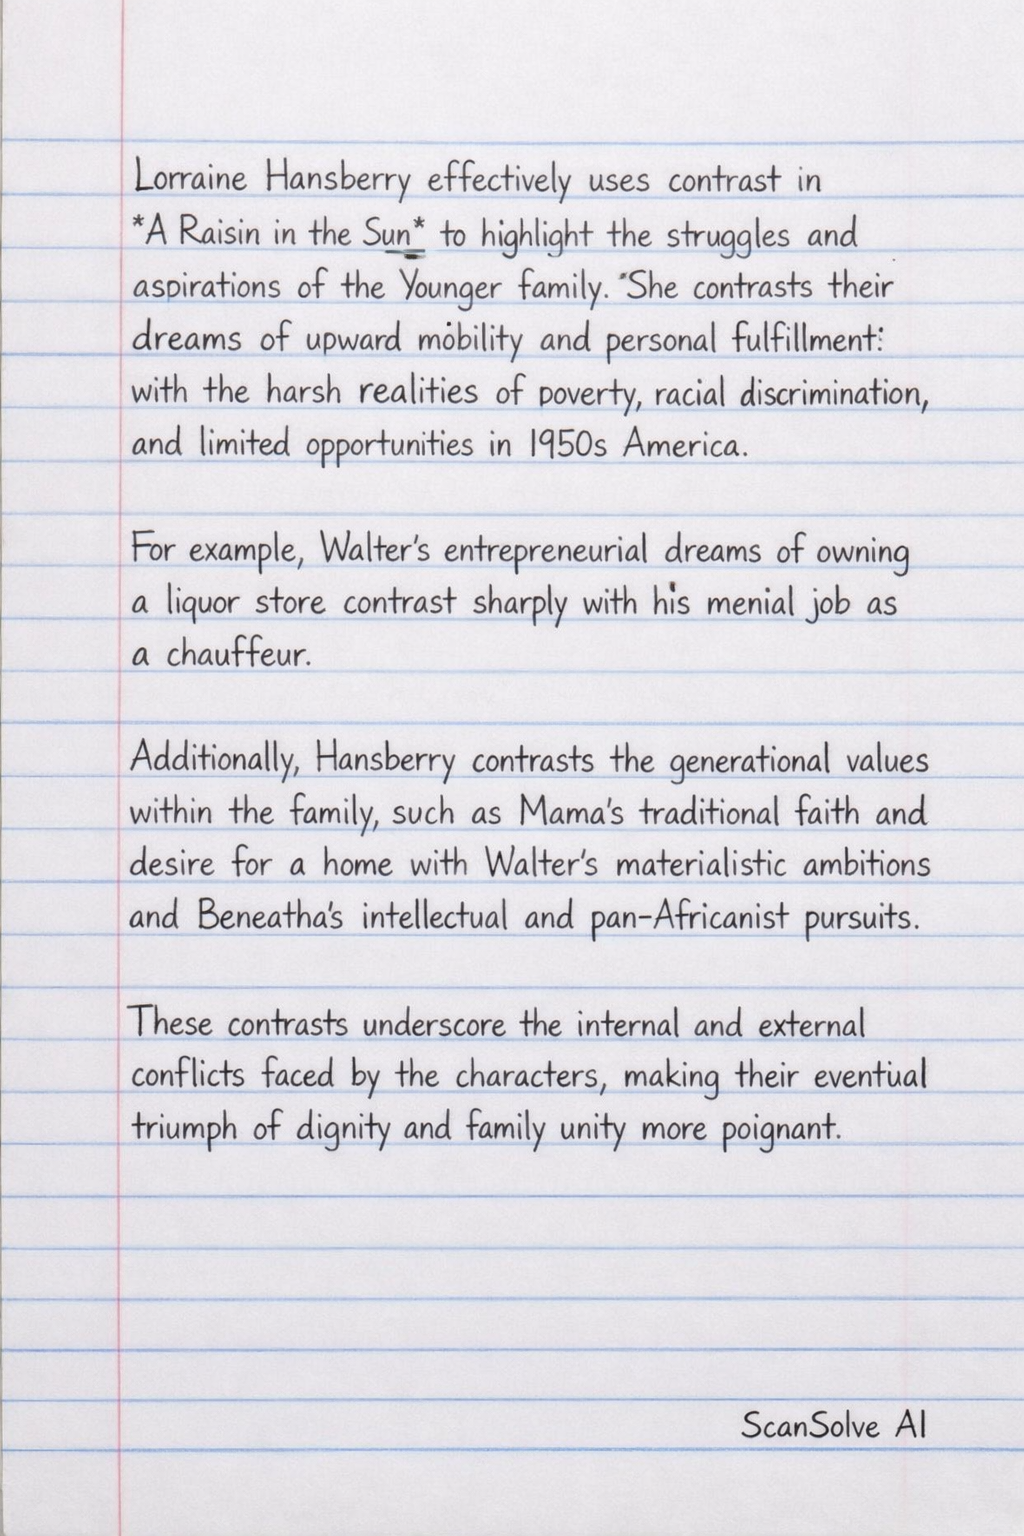 Lorraine Hansberry effectively uses contrast in
*A Raisin in the Sun* to highlight the struggles and
aspirations of the Younger family. "She contrasts their
dreams of upward mobility and personal fulfillment:
with the harsh realities of poverty, racial discrimination,
and limited opportunities in 1950s America.
For example, Walter's entrepreneurial dreams of owning
a liquor store contrast sharply with his menial job as
a chauffeur.
Additionally, Hansberry contrasts the generational values
within the family, such as Mama's traditional faith and
desire for a home with Walter's materialistic ambitions
and Beneatha's intellectual and pan-Africanist pursuits.
These contrasts underscore the internal and external
conflicts faced by the characters, making their eventual
triumph of dignity and family unity more poignant.
ScanSolve AI